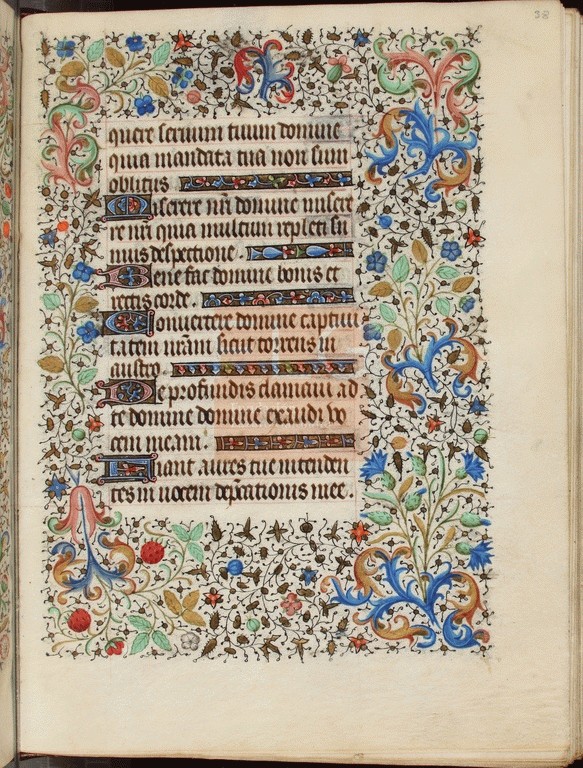 38
quere servum tuum domine
quia mandata tua non sum
oblitus
Miserere nr̄i domine misere
re nr̄i quia multum repleti su
mus despectione.
Bene fac domine bonis et
rectis corde.
Convertere domine captivi
tatem nr̄am sicut torrens in
austro
De profundis clamavi ad
te domine domine exaudi vo
cem meam.
Fiant aures tue intenden
tes in vocem dep̄cationis mee.